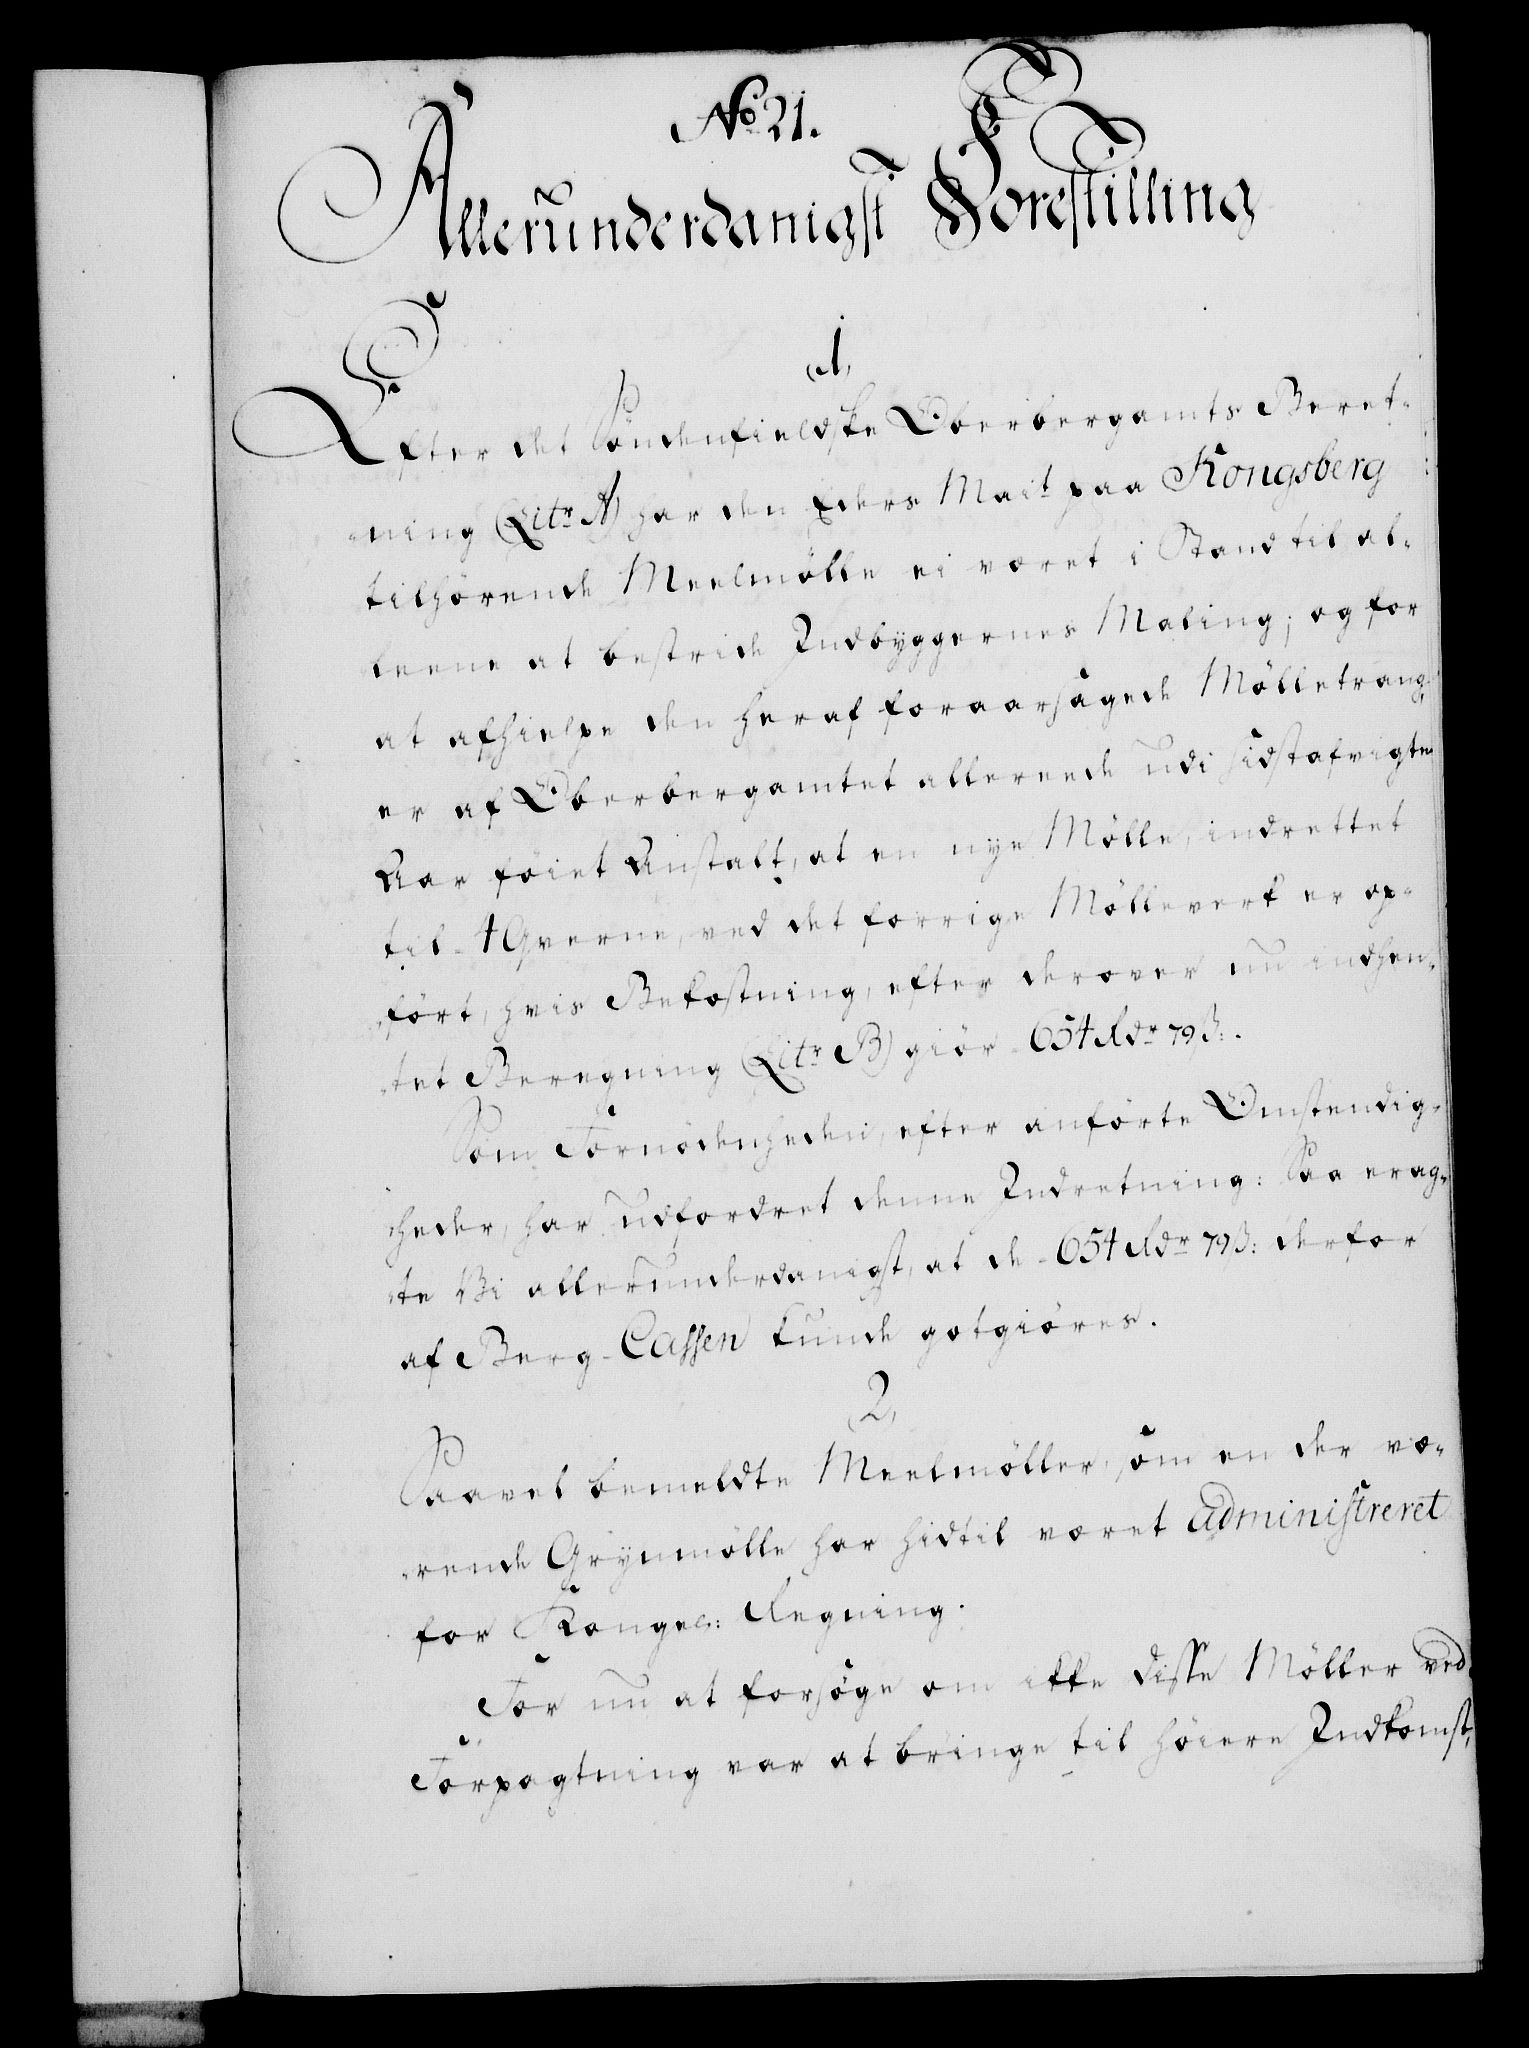 No 21.
Allerunderdanigst Forestilling
1,
Efter det Söndenfieldske Oberbergamts Beret-
ning (Litr A) har den Eders Mait paa Kongsberg
tilhörende Meelmölle ei været i Stand til al-
leene at bestride Indbyggernes Maling; og for
at afhielpe den heraf foraarsagede Mölletrang,
er af Oberbergamtet allereede udi sidstafvigte
Aar föiet Anstalt, at en nye Mölle, indrettet
til 4 Qverne, ved det forrige Mölleverk er op-
fört, hvis Bekostning, efter derover nu indhen-
tet Beregning (Litr B) giör 654 Rdr 79 ß:.
Som Fornödenheden, efter anförte Omstendig-
heder, har udfordret denne Indretning: Saa erag-
te Vi allerunderdanigst, at de 654 Rdr 79 ß: derfor
af Berg-Cassen kunde gotgiöres.
2,
Saavel bemeldte Meelmöller, som en der væ-
rende Grynmölle har hidtil været administreret
for Kongel: Regning.
For nu at forsöge om ikke disse Möller ved
Forpagtning var at bringe til höiere Indkomst,